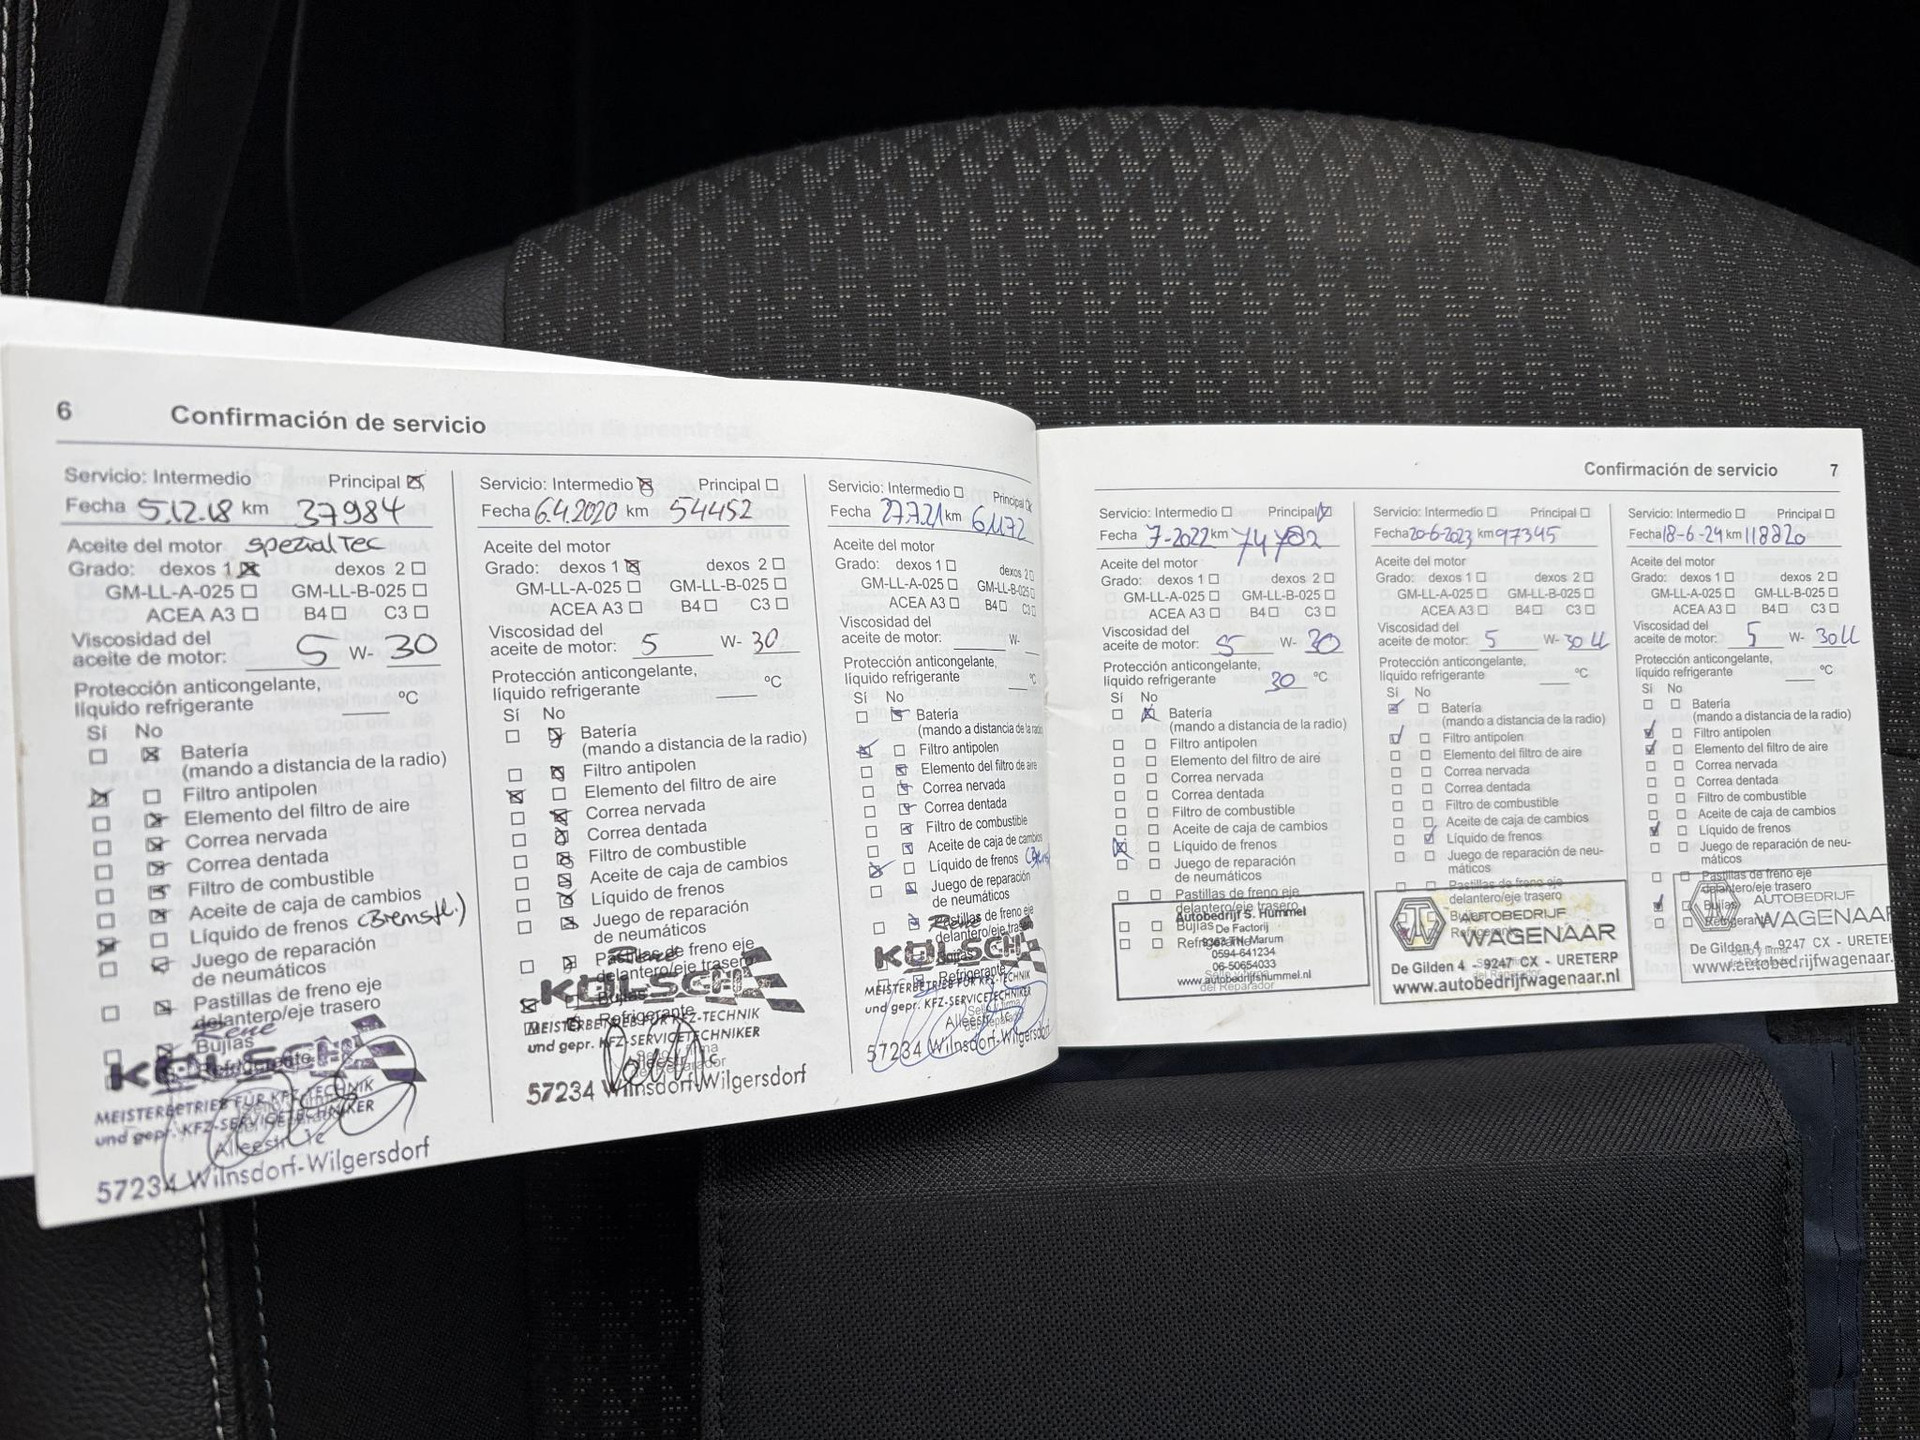 6 Confirmación de servicio
Servicio: Intermedio Principal ☒
Fecha 5.12.18 km 37984
Aceite del motor SpezialTec
Grado: dexos 1 ☒ dexos 2 ☐
GM-LL-A-025 ☐ GM-LL-B-025 ☐
ACEA A3 ☐ B4 ☐ C3 ☐
Viscosidad del
aceite de motor: 5 W- 30
Protección anticongelante,
líquido refrigerante ____ °C
Sí No
☐ ☒ Batería
(mando a distancia de la radio)
☒ ☐ Filtro antipolen
☐ ☒ Elemento del filtro de aire
☐ ☒ Correa nervada
☐ ☒ Correa dentada
☐ ☒ Filtro de combustible
☐ ☒ Aceite de caja de cambios
☒ ☐ Líquido de frenos (Bremsfl.)
☐ ☒ Juego de reparación
de neumáticos
☐ ☒ Pastillas de freno eje
delantero/eje trasero
Bujías
Refrigerante
René
KÖLSCH
MEISTERBETRIEB FÜR KFZ-TECHNIK
und gepr. KFZ-SERVICETECHNIKER
Alleestr. 1c
57234 Wilnsdorf-Wilgersdorf
Servicio: Intermedio ☒ Principal ☐
Fecha 6.4.2020 km 54452
Aceite del motor
Grado: dexos 1 ☒ dexos 2 ☐
GM-LL-A-025 ☐ GM-LL-B-025 ☐
ACEA A3 ☐ B4 ☐ C3 ☐
Viscosidad del
aceite de motor: 5 W- 30
Protección anticongelante,
líquido refrigerante ____ °C
Sí No
☐ ☒ Batería
(mando a distancia de la radio)
☐ ☒ Filtro antipolen
☒ ☐ Elemento del filtro de aire
☐ ☒ Correa nervada
☐ ☒ Correa dentada
☐ ☒ Filtro de combustible
☐ ☒ Aceite de caja de cambios
☐ ☒ Líquido de frenos
☐ ☒ Juego de reparación
de neumáticos
☐ ☒ Pastillas de freno eje
delantero/eje trasero
☒ ☐ Bujías
Refrigerante
René
KÖLSCH
MEISTERBETRIEB FÜR KFZ-TECHNIK
und gepr. KFZ-SERVICETECHNIKER
Alleestr. 1c
57234 Wilnsdorf-Wilgersdorf
Servicio: Intermedio ☐ Principal ☒
Fecha 27.7.21 km 61172
Aceite del motor
Grado: dexos 1 ☐ dexos 2 ☐
GM-LL-A-025 ☐ GM-LL-B-025 ☐
ACEA A3 ☐ B4 ☐ C3 ☐
Viscosidad del
aceite de motor: ____ W- __
Protección anticongelante,
líquido refrigerante ____ °C
Sí No
☐ ☒ Batería
(mando a distancia de la radio)
☒ ☐ Filtro antipolen
☐ ☒ Elemento del filtro de aire
☐ ☒ Correa nervada
☐ ☒ Correa dentada
☐ ☒ Filtro de combustible
☐ ☒ Aceite de caja de cambios
☒ ☐ Líquido de frenos
☐ ☒ Juego de reparación
de neumáticos
☐ ☒ Pastillas de freno eje
delantero/eje trasero
Bujías
Refrigerante
René
KÖLSCH
MEISTERBETRIEB FÜR KFZ-TECHNIK
und gepr. KFZ-SERVICETECHNIKER
Alleestr. 1c
57234 Wilnsdorf-Wilgersdorf
Confirmación de servicio 7
Servicio: Intermedio ☐ Principal ☒
Fecha 7-2022 km 74782
Aceite del motor
Grado: dexos 1 ☐ dexos 2 ☐
GM-LL-A-025 ☐ GM-LL-B-025 ☐
ACEA A3 ☐ B4 ☐ C3 ☐
Viscosidad del
aceite de motor: 5 W- 30
Protección anticongelante,
líquido refrigerante 30 °C
Sí No
☐ ☒ Batería
(mando a distancia de la radio)
☐ ☐ Filtro antipolen
☐ ☐ Elemento del filtro de aire
☐ ☐ Correa nervada
☐ ☐ Correa dentada
☐ ☐ Filtro de combustible
☐ ☐ Aceite de caja de cambios
☒ ☐ Líquido de frenos
☐ ☐ Juego de reparación
de neumáticos
☐ ☐ Pastillas de freno eje
delantero/eje trasero
☐ ☐ Bujías
☐ ☐ Refrigerante
Autobedrijf S. Hummel
De Factorij
9363 TH Marum
0594-641234
06-50654033
www.autobedrijfhummel.nl
del Reparador
Servicio: Intermedio ☐ Principal ☐
Fecha 20-6-2023 km 97345
Aceite del motor
Grado: dexos 1 ☐ dexos 2 ☐
GM-LL-A-025 ☐ GM-LL-B-025 ☐
ACEA A3 ☐ B4 ☐ C3 ☐
Viscosidad del
aceite de motor: 5 W- 30 LL
Protección anticongelante,
líquido refrigerante ____ °C
Sí No
☑ ☐ Batería
(mando a distancia de la radio)
☑ ☐ Filtro antipolen
☐ ☐ Elemento del filtro de aire
☐ ☐ Correa nervada
☐ ☐ Correa dentada
☐ ☐ Filtro de combustible
☐ ☐ Aceite de caja de cambios
☐ ☑ Líquido de frenos
☐ ☐ Juego de reparación de neu-
máticos
☐ ☐ Pastillas de freno eje
delantero/eje trasero
Bujías
Refrigerante
AUTOBEDRIJF
WAGENAAR
De Gilden 4 - 9247 CX - URETERP
www.autobedrijfwagenaar.nl
Servicio: Intermedio ☐ Principal ☐
Fecha 18-6-24 km 118820
Aceite del motor
Grado: dexos 1 ☐ dexos 2 ☐
GM-LL-A-025 ☐ GM-LL-B-025 ☐
ACEA A3 ☐ B4 ☐ C3 ☐
Viscosidad del
aceite de motor: 5 W- 30 LL
Protección anticongelante,
líquido refrigerante ____ °C
Sí No
☐ ☐ Batería
(mando a distancia de la radio)
☑ ☐ Filtro antipolen
☑ ☐ Elemento del filtro de aire
☐ ☐ Correa nervada
☐ ☐ Correa dentada
☐ ☐ Filtro de combustible
☐ ☐ Aceite de caja de cambios
☑ ☐ Líquido de frenos
☐ ☐ Juego de reparación de neu-
máticos
☐ ☐ Pastillas de freno eje
delantero/eje trasero
☑ ☐ Bujías
☐ ☐ Refrigerante
AUTOBEDRIJF
WAGENAAR
De Gilden 4 - 9247 CX - URETER
www.autobedrijfwagenaar.